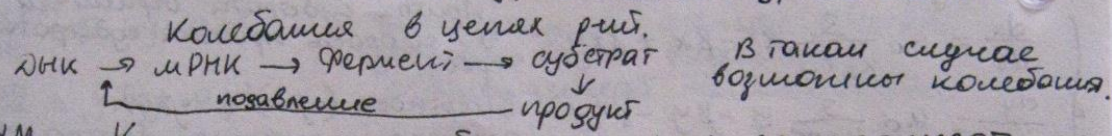 Колебания в цепях р-ий.
ДНК → мРНК → Фермент → субстрат
↓
подавление продукт
В таком случае
возможны колебания.